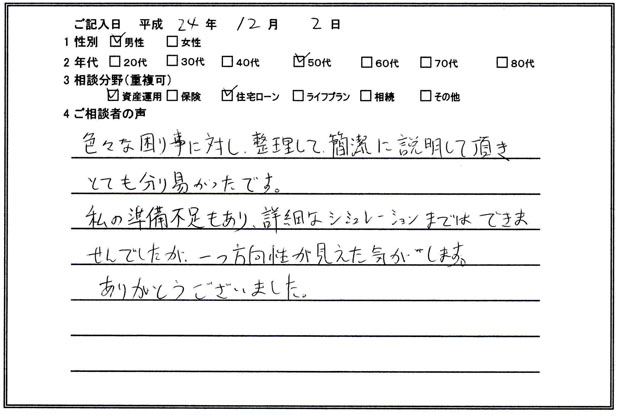 ご記入日 平成 24 年 12 月 2 日
1 性別 ☑男性 □女性
2 年代 □20代 □30代 □40代 ☑50代 □60代 □70代 □80代
3 相談分野(重複可)
☑資産運用 □保険 ☑住宅ローン □ライフプラン □相続 □その他
4 ご相談者の声
色々な困り事に対し、整理して、簡潔に説明して頂き
とても分り易かったです。
私の準備不足もあり、詳細なシミュレーションまでは できま
せんでしたが、一つ方向性が見えた気がします。
ありがとうございました。